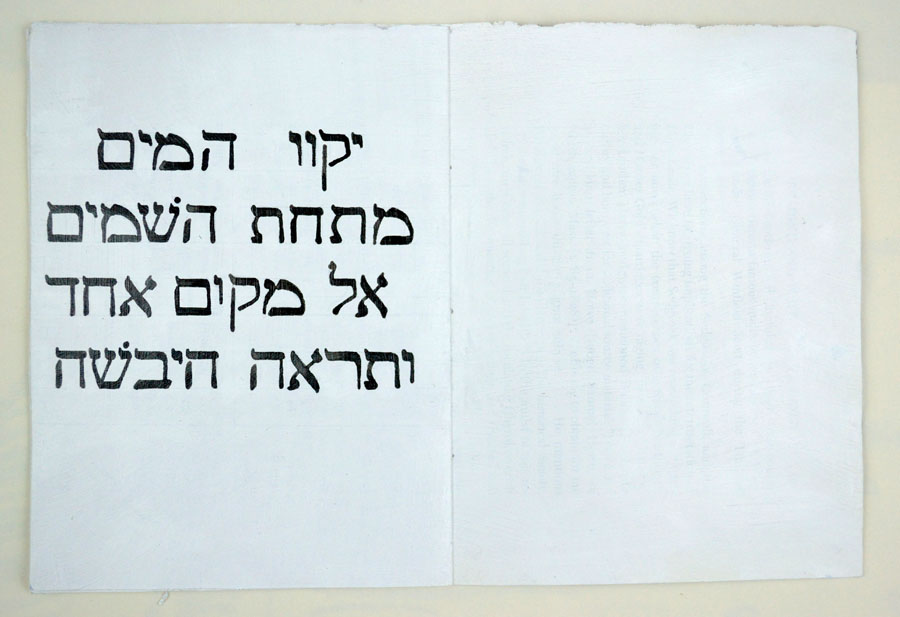 יקוו המים
מתחת השׁמים
אל מקום אחד
ותראה היבשׁה